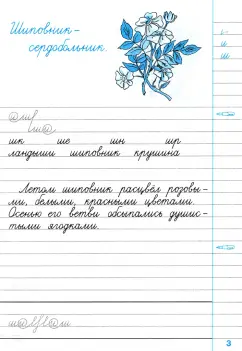 Шиповник-
сердобольник.
i-
и
ш
шк ше шн шр
ландыши шиповник крушина
Летом шиповник расцвёл розовы-
ми, белыми, красными цветами.
Осенью его ветви обсыпались душис-
тыми ягодками.
3